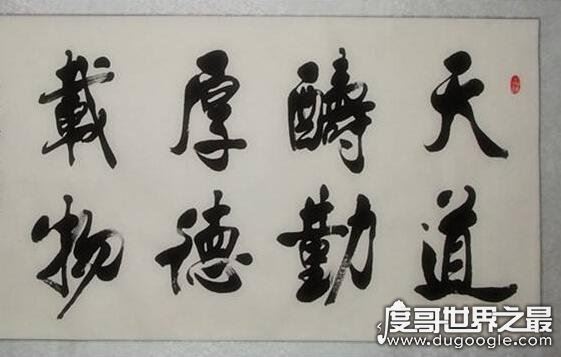 天道
醻勤
厚德
載物
度哥世界之最
www.dugoogle.com